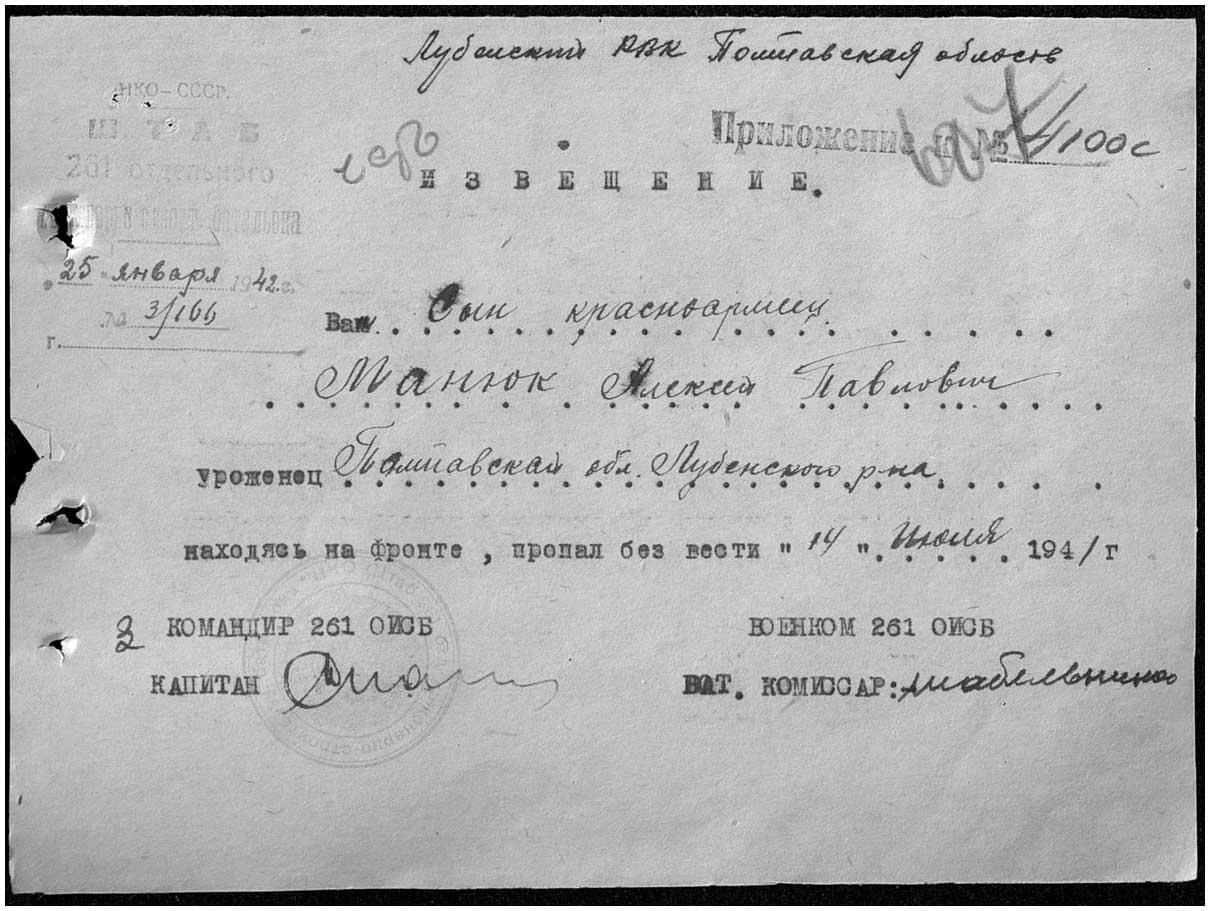 Лубенский РВК Полтавская область
НКО-СССР.
ШТАБ
261 отдельного
батальона
"25" января 1942 г.
№ 3/166
г.
Приложение к № 4100с
ИЗВЕЩЕНИЕ.
Ваш Сын красноармеец
Манюк Алексей Павлович
уроженец Полтавской обл. Лубенского р-на
находясь на фронте, пропал без вести "14" Июля 1941 г
3 КОМАНДИР 261 ОИСБ
ВОЕНКОМ 261 ОИСБ
КАПИТАН
БАТ. КОМИССАР: